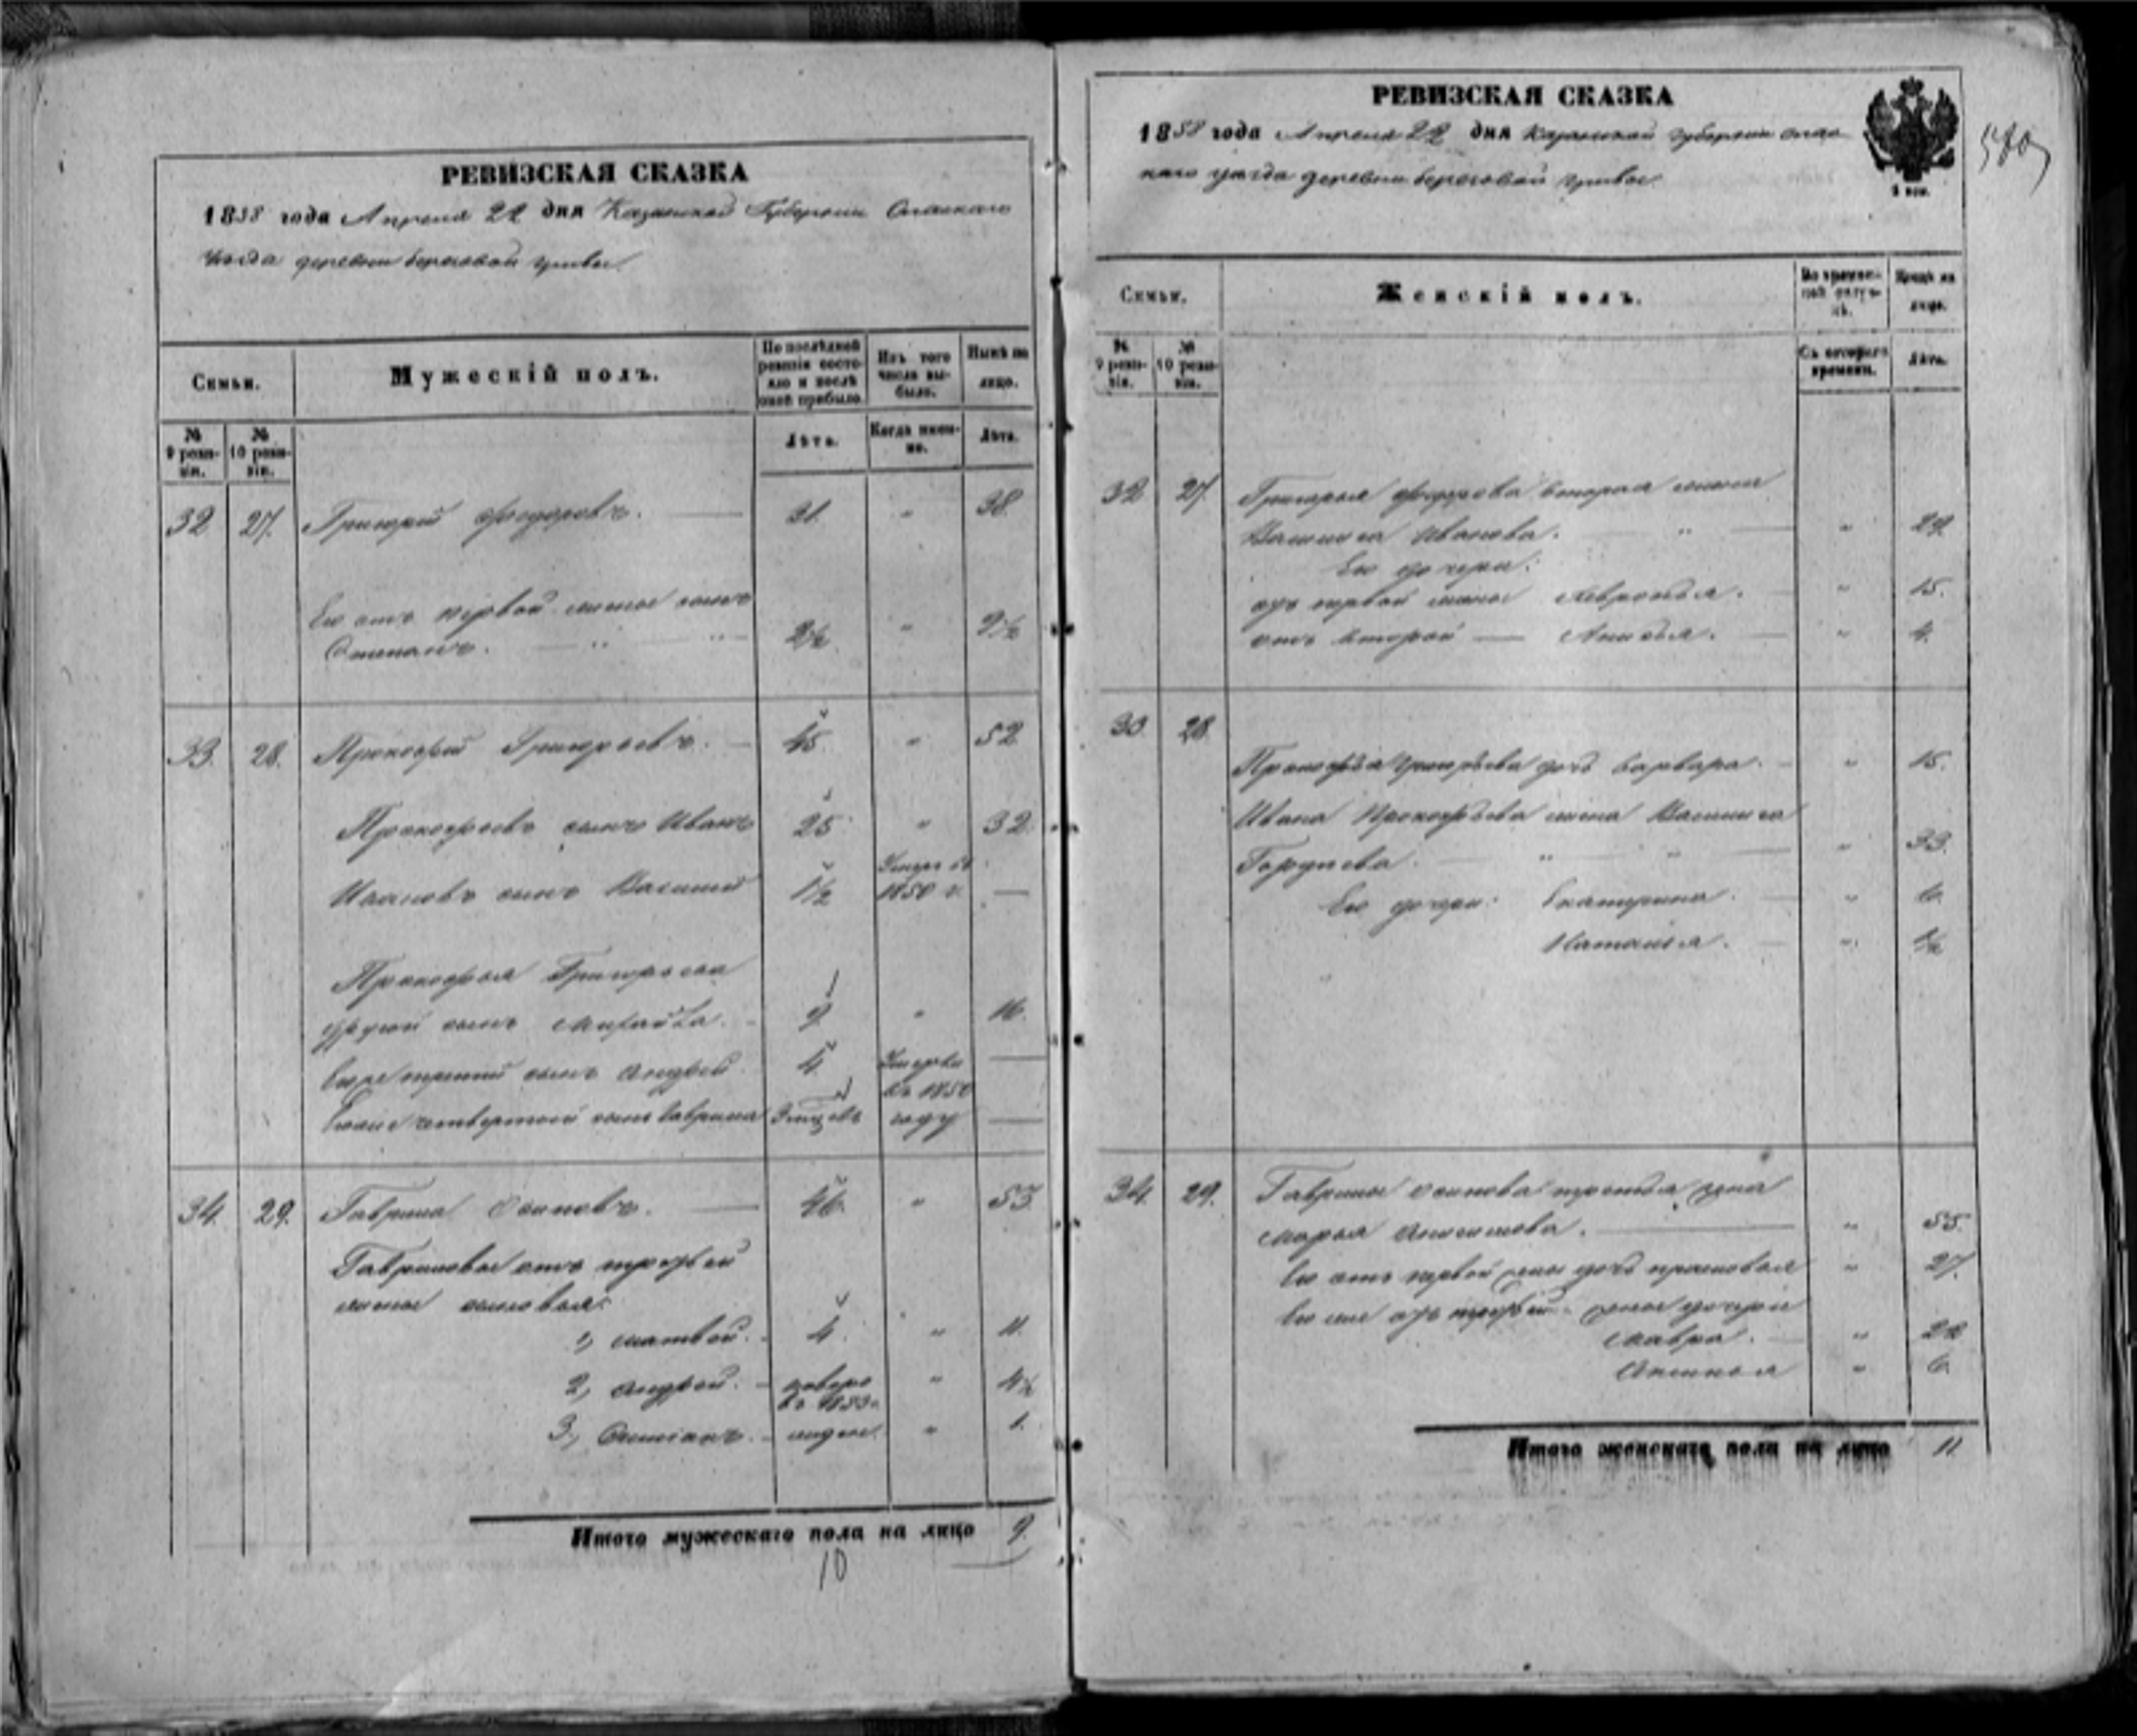 РЕВИЗСКАЯ СКАЗКА
1858 года Апреля 22 дня Казанской Губернии Спаскаго
уѣзда деревни береговой гривы
Семьи.
Мужескій полъ.
По послѣдней ревизіи состояло и послѣ оной прибыло.
Изъ того числа выбыло.
Нынѣ на лицо.
№ 9 ревизіи.
№ 10 ревизіи.
Лѣта.
Когда именно.
Лѣта.
32 27. Григорій Федоровъ. — 31. " 38.
Его отъ первой жены сынъ
Степанъ. 2½ " 9½
33. 28. Прокофій Григорьевъ. 45 " 52
Прокофьевъ сынъ Иванъ 25 " 32.
Ивановъ сынъ Василий 1½ Умеръ въ 1850 г. —
Прокофья Григорьева
другой сынъ Михайла. 9 " 16.
Его же третий сынъ Андрей 4 —
Его же четвертой сынъ Гаврила въ 1850 году —
34. 29. Гаврила Осиповъ. — 46. " 53.
Гавриловы отъ третьей
жены сыновья:
1, Матвей. 4. " 11.
2, Андрей. въ 1853 г. " 4½
3, — " 1.
Итого мужескаго пола на лицо 9.
10
РЕВИЗСКАЯ СКАЗКА
1858 года Апреля 22 дня Казанской губернии Спас
каго уѣзда деревни береговой гривы
Семьи.
Женскій полъ.
Во временной отлучкѣ.
Нынѣ на лицо.
№ 9 ревизіи.
№ 10 ревизіи.
Съ котораго времени.
Лѣта.
32 27. Григорья федорова вторая жена
Василиса Иванова. " 29.
Его дочери:
отъ первой жены Хевронья. " 15.
отъ второй — Анисья. " 4.
33 28.
Прокофья Григорьева дочь Варвара. " 15.
Ивана Прокофьева жена Василиса
" 33.
Его дочери: Екатерина. " 6.
Наталья. " ½
34. 29. Гаврилы Осипова третья жена
Марья " 55.
Его отъ первой жены дочь " 27.
Его же отъ третьей жены дочери
Мавра. " 22
" 6.
Итого женскаго пола на лицо 11